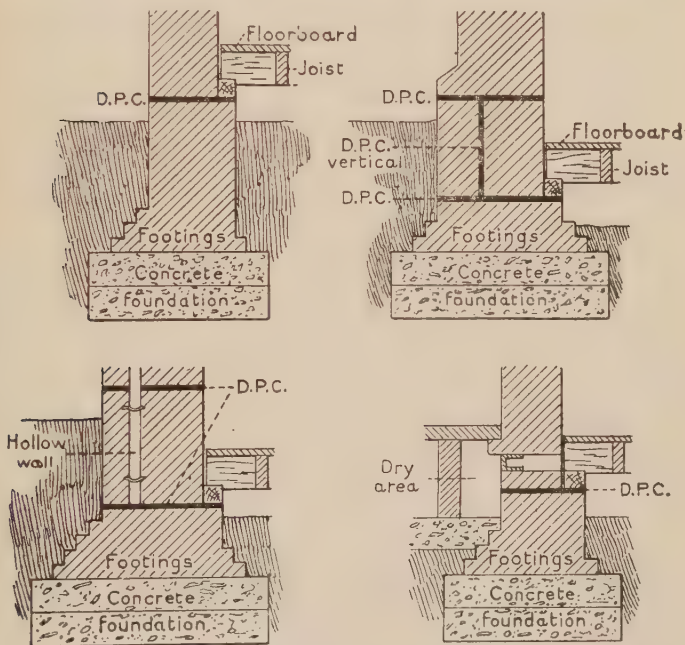 Floorboard
Joist
D.P.C.
Footings
Concrete
foundation
D.P.C.
D.P.C.
vertical
D.P.C.
Floorboard
Joist
Footings
Concrete
foundation
D.P.C.
Hollow
wall
Footings
Concrete
foundation
Dry
area
D.P.C.
Footings
Concrete
foundation